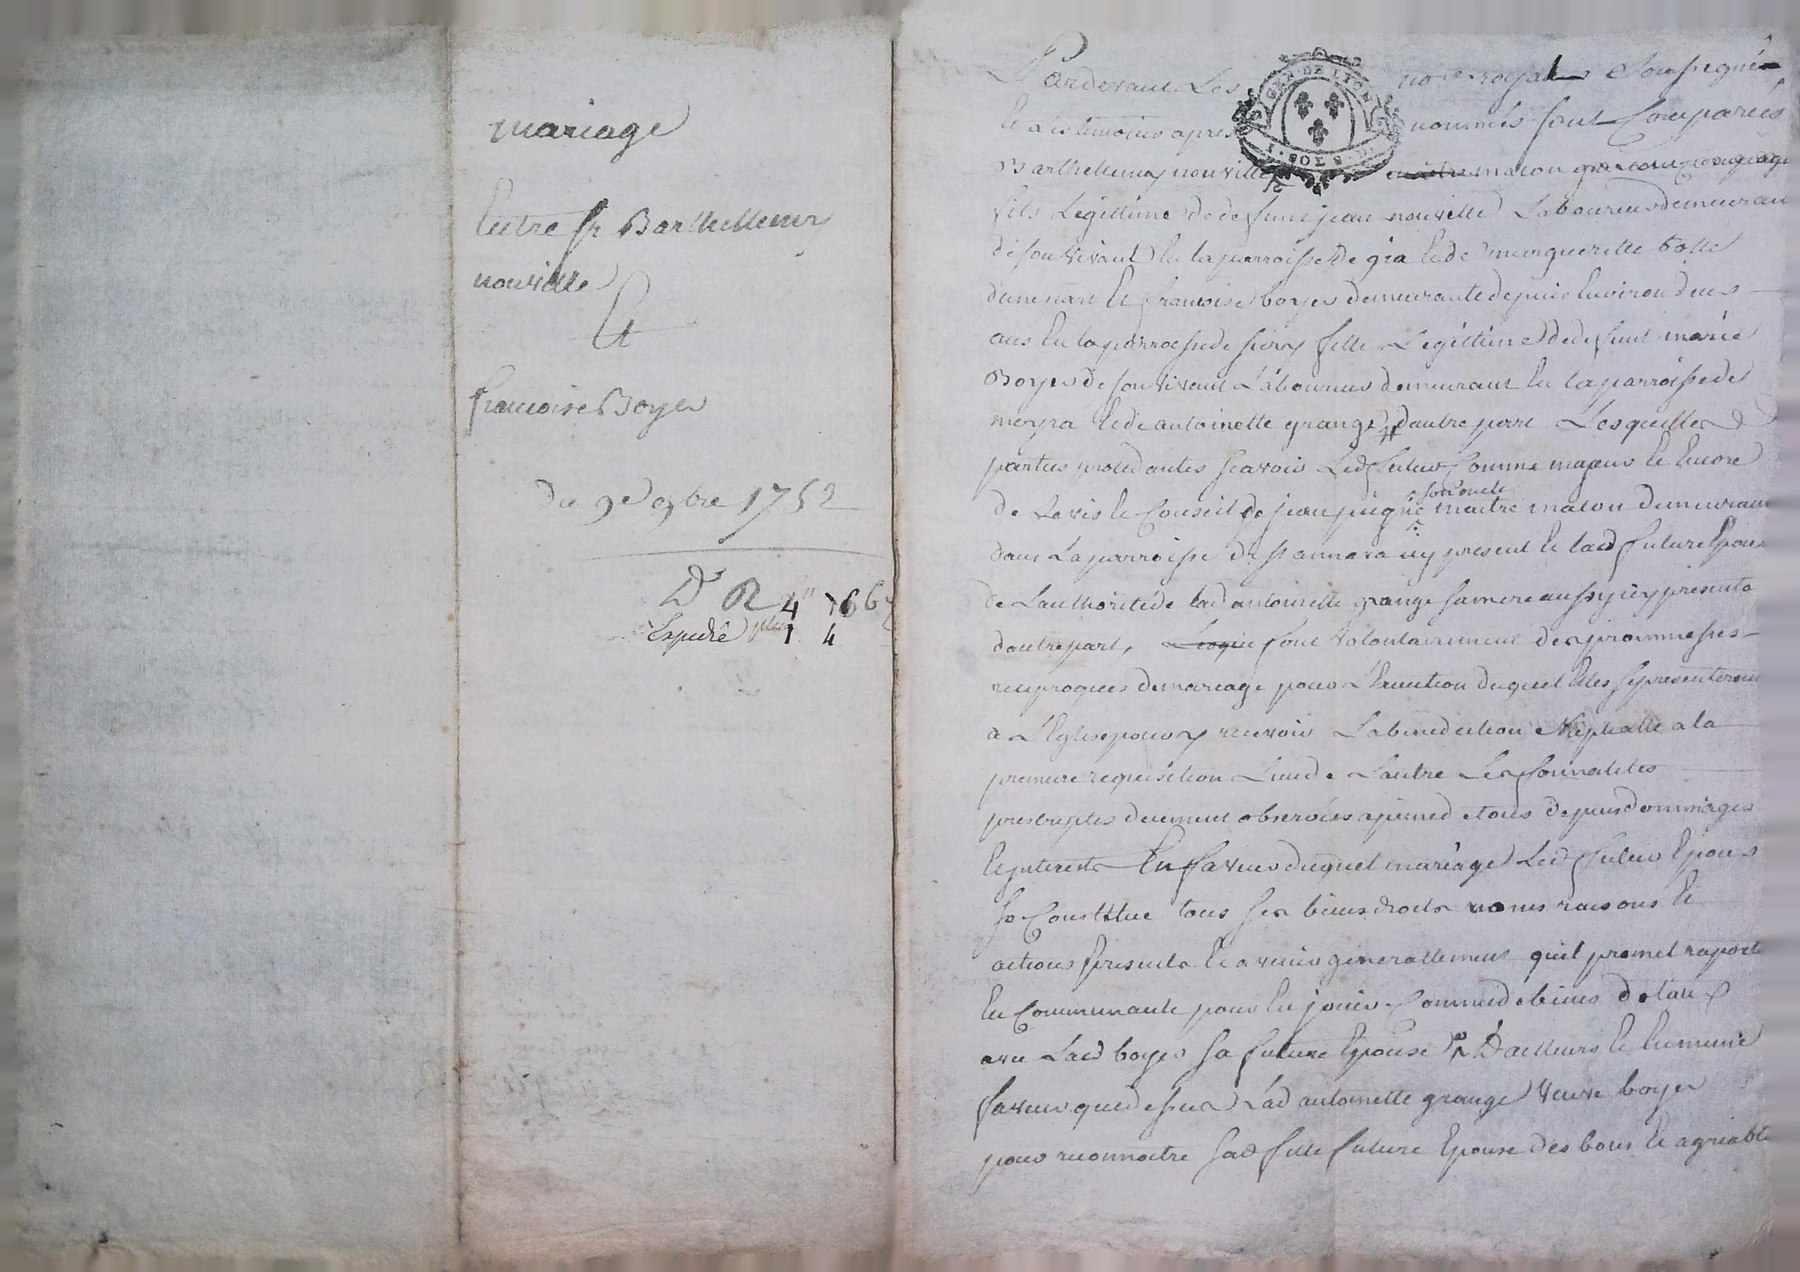 mariage
Entre sr Barthellemy
nouvelle
Et
francoise Boyer
Du 9e 9bre 1752
Dt R 4
Expedié 1 4
Pardevant Les
GEN DE LYON
2 SOLS
nores royaux Soussignés
Et les temoins apres
nommés sont Comparus
Barthellemy nouvelle
maitre macon
fils Legittime de defunt jean nouvelle Laboureur demeurant
de son vivant En la parroisse de gia Et de margueritte
dune part Et francoise boyer demeurante depuis Environ deux
ans En la parroisse de fille Legittime de defunt marie
Boyer de son vivant Laboureur demeurant En la parroisse de
meyra Et de antoinette grange dautre part Lesquelles
parties procedantes scavoir Led futur Comme majeur Et Encore
son oncle
de Lavis Et Conseil de jean maitre macon demeurant
dans La parroisse de icy present Et lad future Epouse
de Lauthorité de lad antoinette grange sa mere aussy icy presente
dautre part, font volontairement des promesses
reciproques de mariage pour L'Execution duquel Elles se presenteront
a L'Eglise pour y recevoir La benediction Nuptialle a la
premiere requisition Lun de Lautre Les formalites
prescriptes deuement observées a peine de tous depens dommages
Et interests En faveur duquel mariage Led futur Epoux
se Constitue tous ses biens droits noms raisons Et
actions presents Et a venir generallement quil promet raporter
En Communauté pour En jouir Comme de biens dotaux
avec Lad boyer sa future Epouse Et D'ailleurs Et En meme
faveur que dessus Lad antoinette grange veuve boyer
pour reconnoitre sad fille future Epouse des bons Et agreables